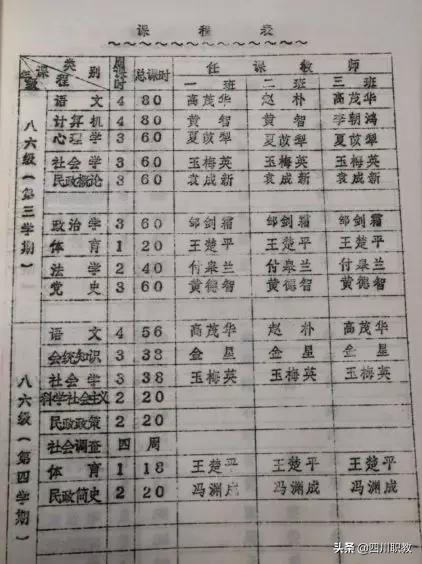 课 程 表
课程 类别 年级 周课时 总课时 任 课 教 师
一 班 二 班 三 班
八六级（第三学期）
语 文 4 80 高茂华 赵 朴 高茂华
计算机 4 80 黄 智 黄 智 李朝鸿
心理学 3 60 夏苡犁 夏苡犁 夏苡犁
社会学 3 60 玉梅英 玉梅英 玉梅英
民政概论 3 60 袁成新 袁成新 袁成新
政治学 3 60 邹剑霜 邹剑霜 邹剑霜
体 育 1 20 王楚平 王楚平 王楚平
法 学 2 40 付皋兰 付皋兰 付皋兰
党 史 3 60 黄德智 黄德智 黄德智
八六级（第四学期）
语 文 4 56 高茂华 赵 朴 高茂华
会统知识 3 38 金 星 金 星 金 星
社会学 3 38 玉梅英 玉梅英 玉梅英
科学社会主义 2 20
民政政策 2 20
社会调查 四 周
体 育 1 18 王楚平 王楚平 王楚平
民政简史 2 20 冯渊成 冯渊成 冯渊成
头条 @四川职教